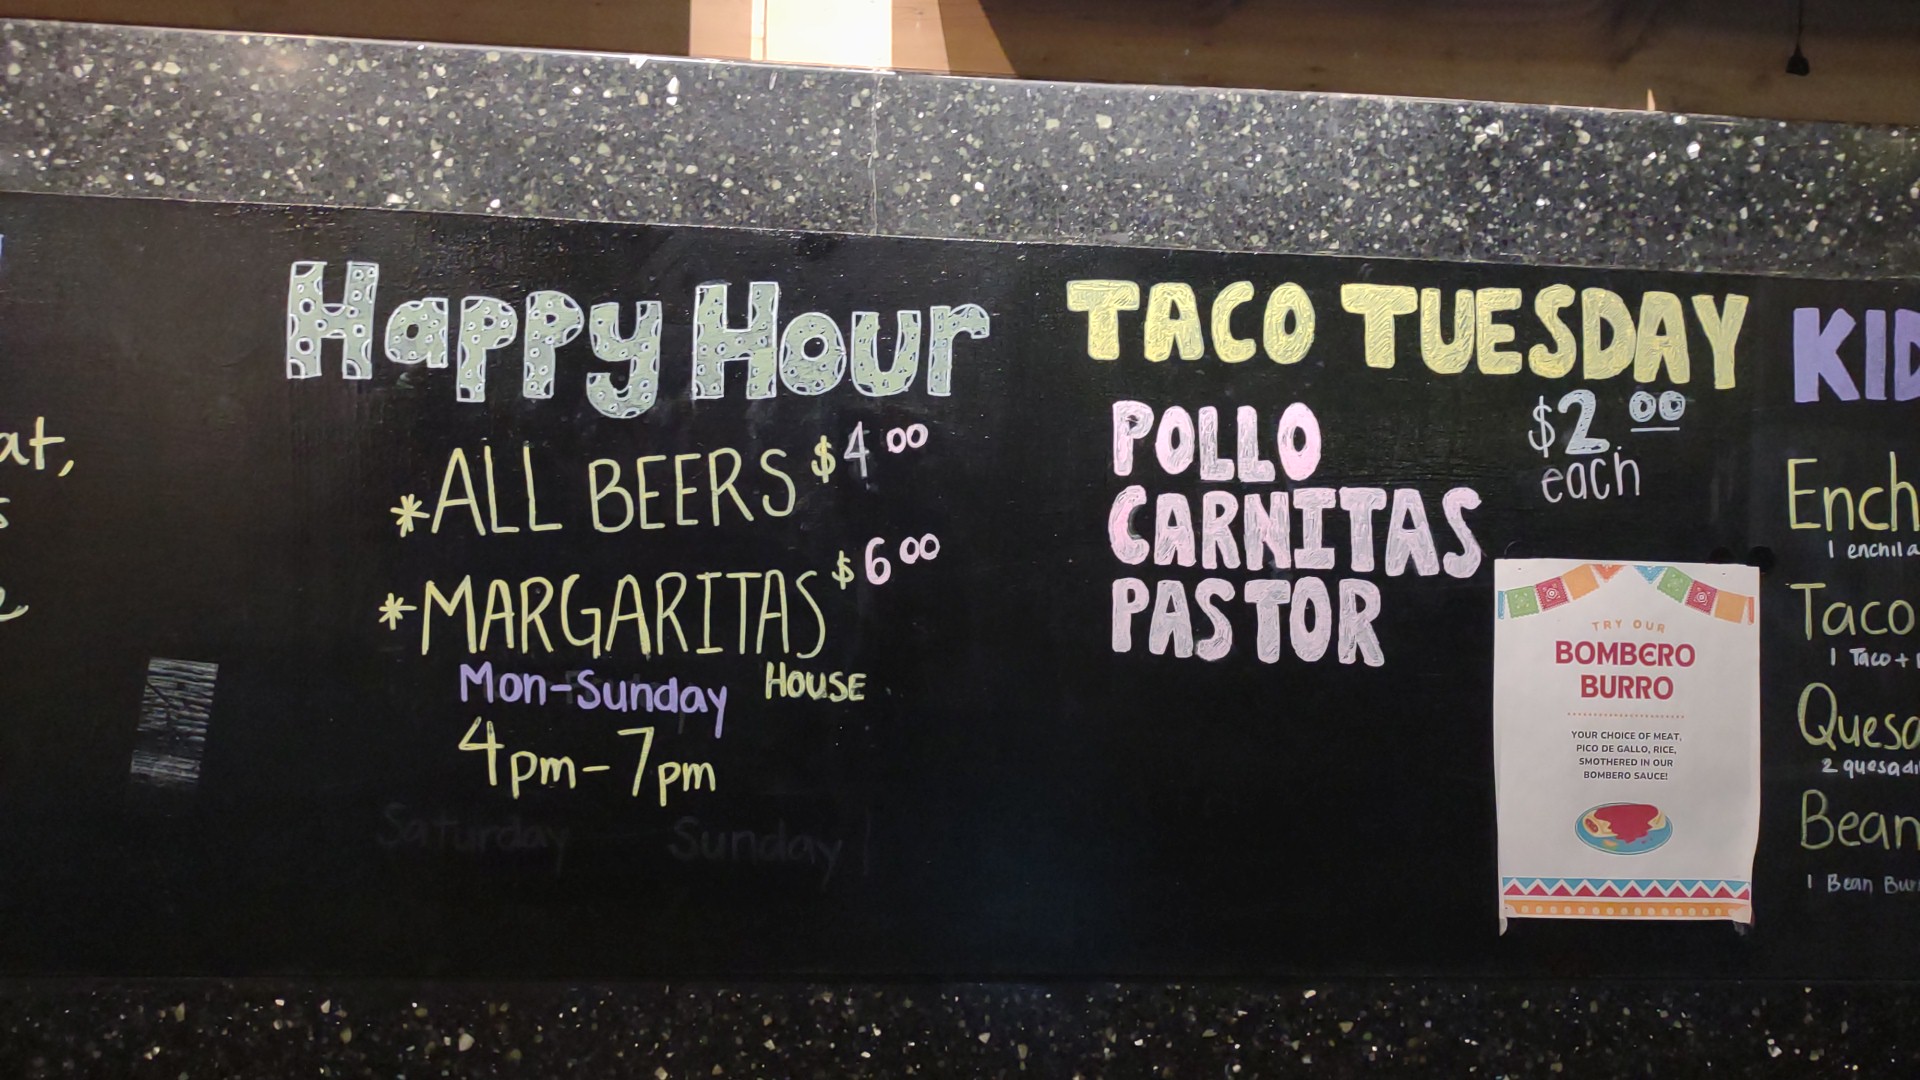 at,
Happy Hour
*ALL BEERS $4.00
*MARGARITAS $6.00
HOUSE
Mon-Sunday
4pm-7pm
Saturday Sunday
TACO TUESDAY
$2.00
each
POLLO
CARNITAS
PASTOR
TRY OUR
BOMBERO
BURRO
YOUR CHOICE OF MEAT,
PICO DE GALLO, RICE,
SMOTHERED IN OUR
BOMBERO SAUCE!
KID
Ench
1 enchila
Taco
1 Taco +
Quesa
2 quesadi
Bean
1 Bean Bur